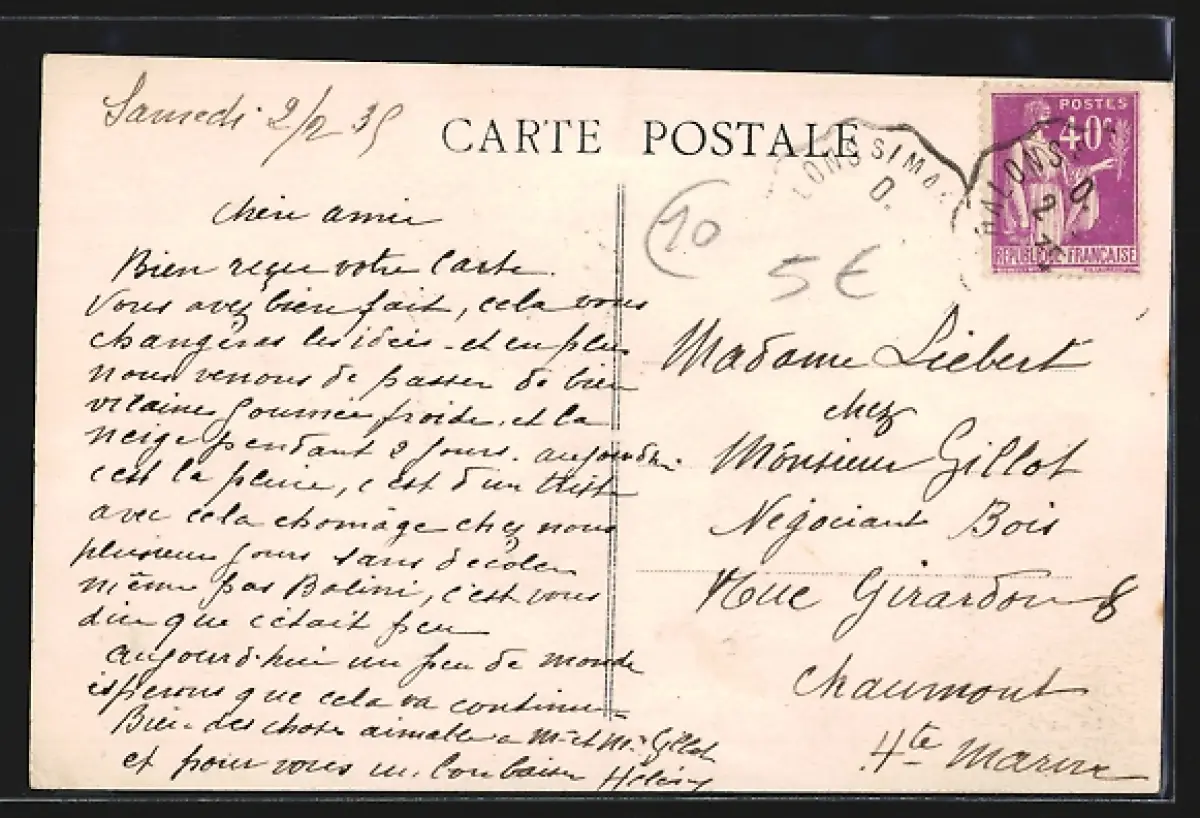 Samedi 2/2 35
CARTE POSTALE
POSTES
40c
REPUBLIQUE FRANÇAISE
D.
D.
2
10
5€
Chère amie
Bien reçue votre Carte.
Vous avez bien fait, cela vous
changeras les idées et en plus
nous venons de passer de bien
vilaine journée froide. et la
neige pendant 2 jours. aujourdhui
c'est la pluie, c'est d'un triste
avec cela chomage chez nous
plusieurs jours sans
même pas Bolini, c'est vous
dire que c'était peu
aujourd'hui un peu de monde
espérons que cela va continuer
Bien des choses aimable a Mr et Me Gillot
et pour vous un bon baiser
Madame Liébert
chez
Monsieur Gillot
Négociant Bois
Rue Girardon 8
Chaumont
Hte Marne